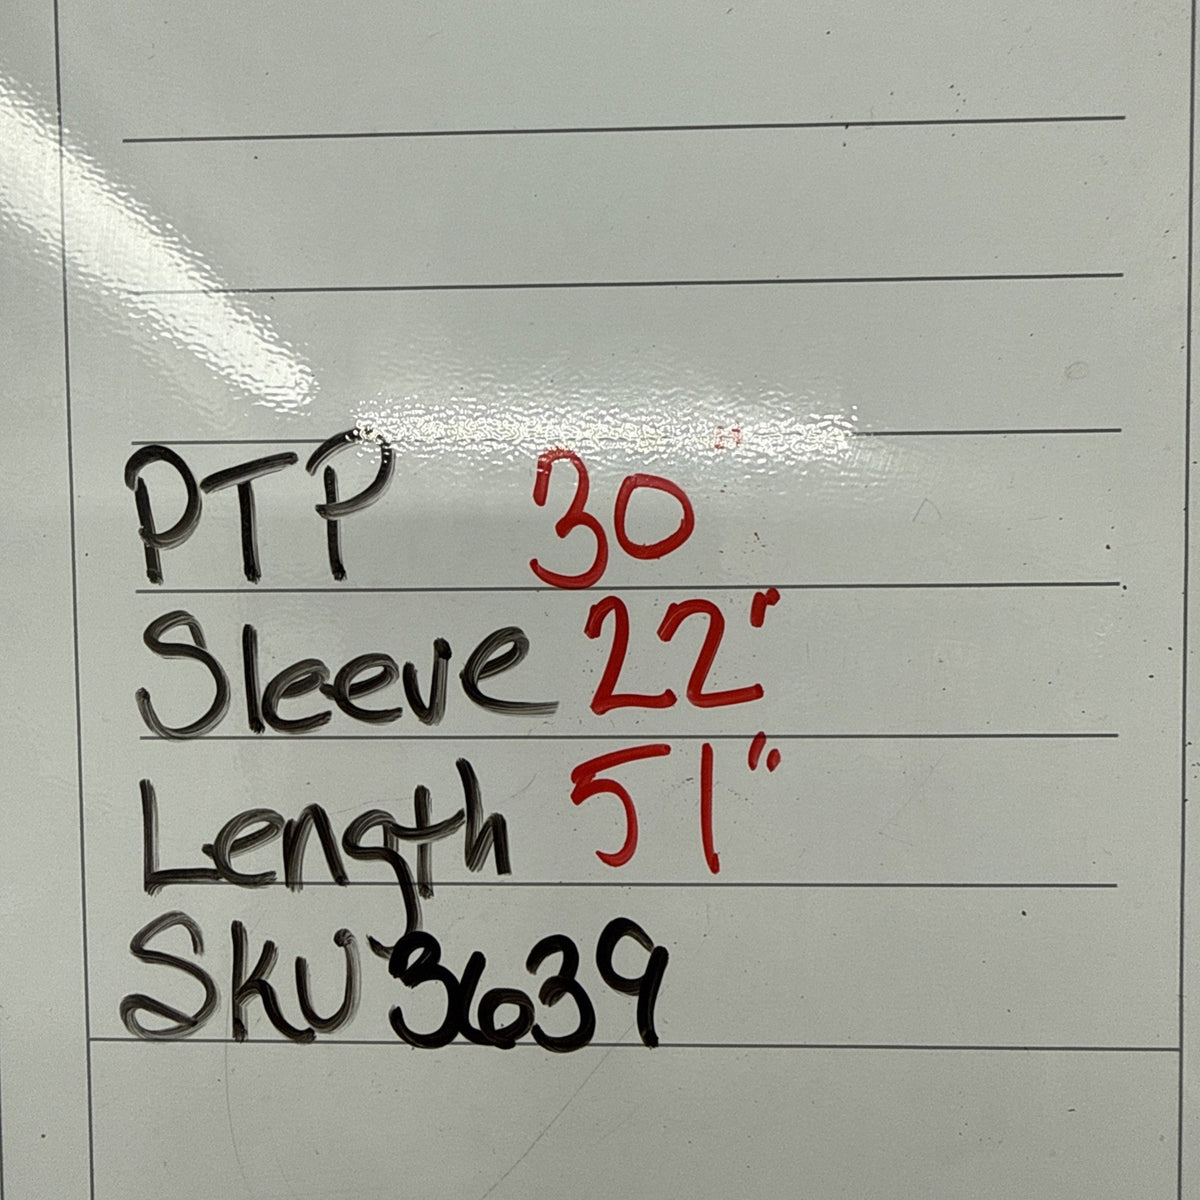 PTP 30"
Sleeve 22"
Length 51"
SKU 3639